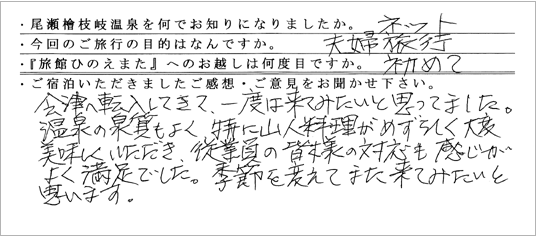 ・尾瀬檜枝岐温泉を何でお知りになりましたか。 ネット
・今回のご旅行の目的はなんですか。 夫婦旅行
・『旅館ひのえまた』へのお越しは何度目ですか。 初めて
・ご宿泊いただきましたご感想・ご意見をお聞かせ下さい。
会津へ転入してきて、一度は来てみたいと思ってました。
温泉の泉質もよく、特に山人料理がめずらしく大変
美味しくいただき、従業員の皆様の対応も感じが
よく満足でした。季節を変えてまた来てみたいと
思います。